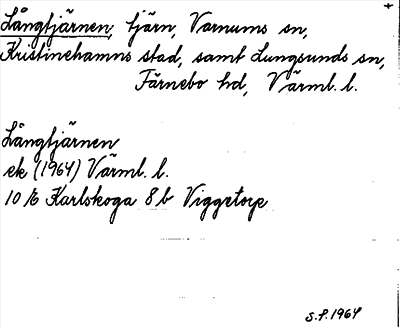 Långtjärnen, tjärn, Varnums sn,
Kristinehamns stad, samt Lungsunds sn,
Färnebo hd, Värml. l.
Långtjärnen
ek (1964) Värml. l.
10 E Karlskoga 8 b Viggetorp
S.P. 1964